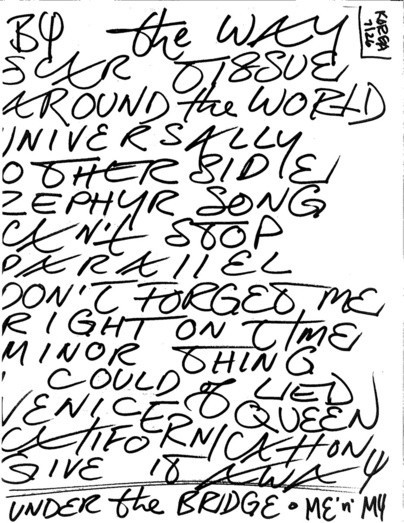 KOREA
7/26
BY the WAY
SCAR TISSUE
AROUND the WORLD
UNIVERSALLY
OTHERSIDE
ZEPHYR SONG
CAN'T STOP
PARALLEL
DON'T FORGET ME
RIGHT ON TIME
MINOR THING
I COULD of LIED
VENICE QUEEN
CALIFORNICATION
GIVE IT AWAY
UNDER the BRIDGE • ME 'n' MY